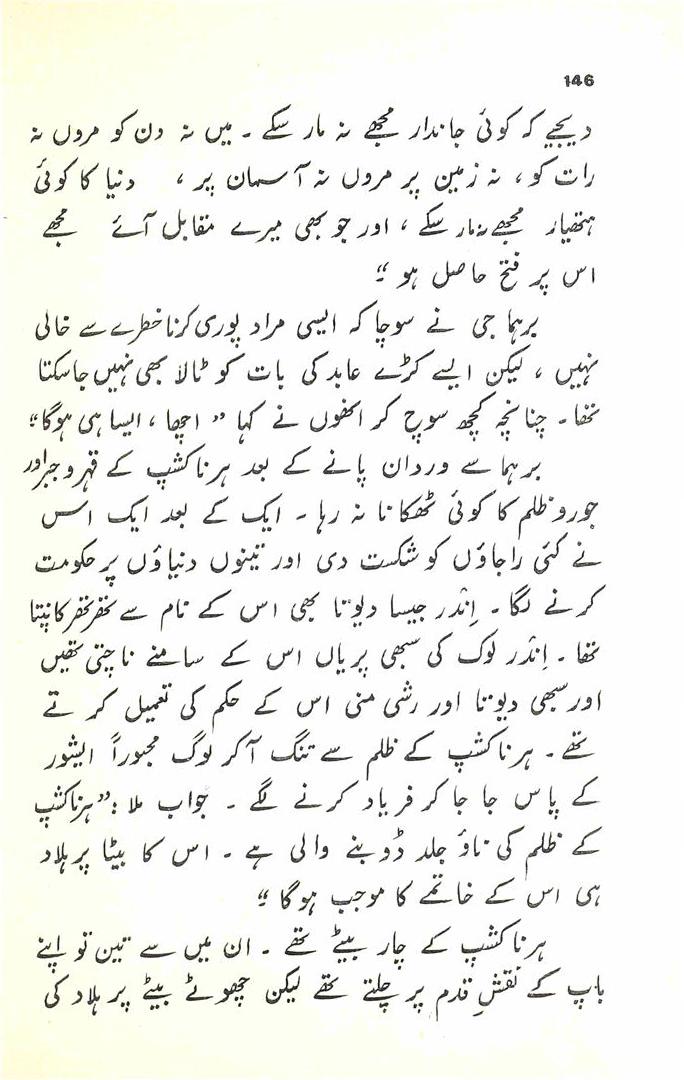 146
دیجیے کہ کوئی جاندار مجھے نہ مار سکے ۔ میں نہ دن کو مروں نہ
رات کو ، نہ زمین پر مروں نہ آسمان پر ، دنیا کا کوئی
ہتھیار مجھے نہ مار سکے ، اور جو بھی میرے مقابل آئے مجھے
اس پر فتح حاصل ہو ۔“
برہما جی نے سوچا کہ ایسی مراد پوری کرنا خطرے سے خالی
نہیں ، لیکن ایسے کڑے عابد کی بات کو ٹالا بھی نہیں جا سکتا
تھا ۔ چنانچہ کچھ سوچ کر انھوں نے کہا ” اچھا ، ایسا ہی ہوگا ۔“
برہما سے وردان پانے کے بعد ہرناکشپ کے قہر و جبر اور
جور و ظلم کا کوئی ٹھکانا نہ رہا ۔ ایک کے بعد ایک اس
نے کئی راجاؤں کو شکست دی اور تینوں دنیاؤں پر حکومت
کرنے لگا ۔ اِندر جیسا دیوتا بھی اس کے نام سے تھرتھر کانپتا
تھا ۔ اِندر لوک کی سبھی پریاں اس کے سامنے ناچتی تھیں
اور سبھی دیوتا اور رشی منی اس کے حکم کی تعمیل کرتے
تھے ۔ ہرناکشپ کے ظلم سے تنگ آکر لوگ مجبوراً ایشور
کے پاس جا جا کر فریاد کرنے لگے ۔ جواب ملا : ”ہرناکشپ
کے ظلم کی ناؤ جلد ڈوبنے والی ہے ۔ اس کا بیٹا پرہلاد
ہی اس کے خاتمے کا موجب ہوگا ۔“
ہرناکشپ کے چار بیٹے تھے ۔ ان میں سے تین تو اپنے
باپ کے نقشِ قدم پر چلتے تھے لیکن چھوٹے بیٹے پرہلاد کی